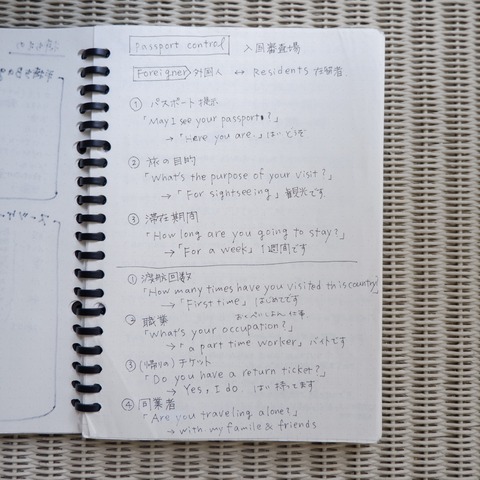 Passport control 入国審査場
Foreigner 外国人 ↔ Residents 在留者
① パスポート提示
「May I see your passport?」
→「Here you are.」はいどうぞ
② 旅の目的
「What's the purpose of your visit?」
→「For sightseeing」観光です
③ 滞在期間
「How long are you going to stay?」
→「For a week」1週間です
① 渡航回数
「How many times have you visited this country?」
→「First time」はじめてです
② 職業 おくぺいしょん 仕事
「What's your occupation?」
→「a part time worker」バイトです
③ (帰りの)チケット
「Do you have a return ticket?」
→ Yes, I do. はい持ってます
④ 同業者
「Are you traveling alone?」
→ with my famile & friends